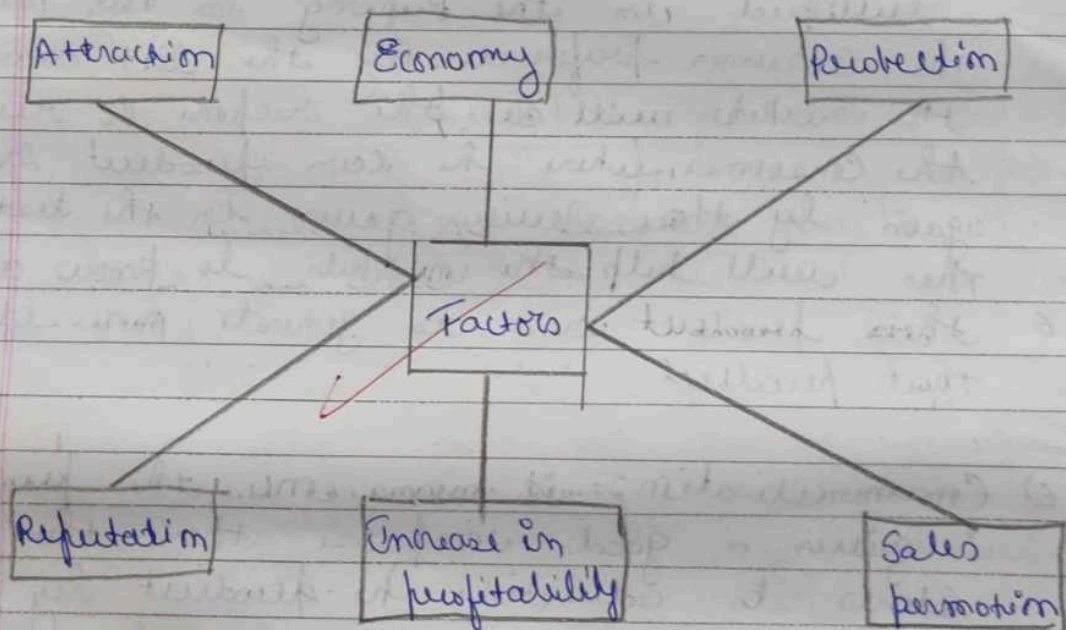 Attraction
Economy
Protection
Factors
Reputation
Increase in
profitability
Sales
permotion